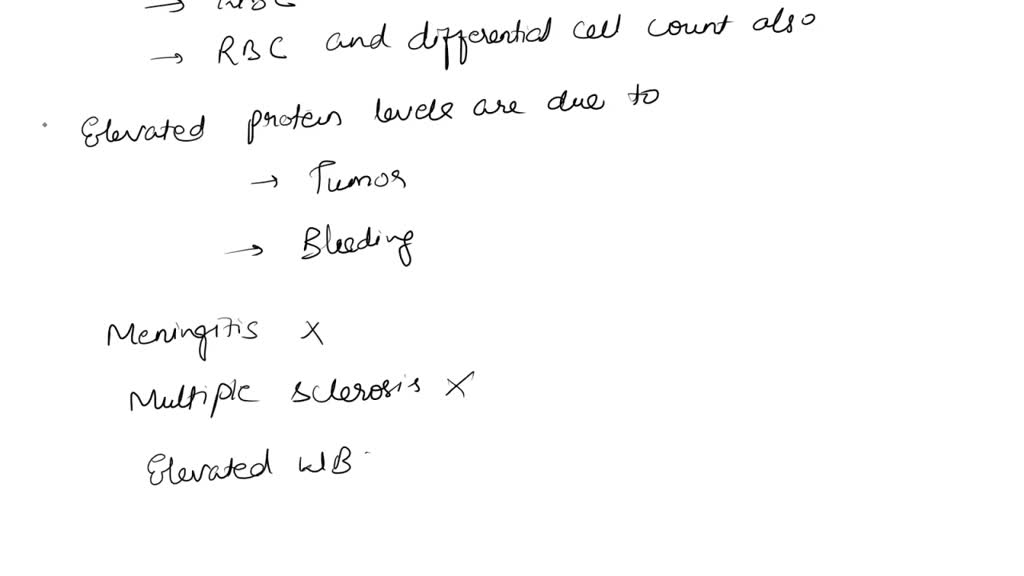 → RBC and differential cell count also
Elevated protein levels are due to
→ Tumor
→ Bleeding
Meningitis X
Multiple sclerosis X
Elevated WB